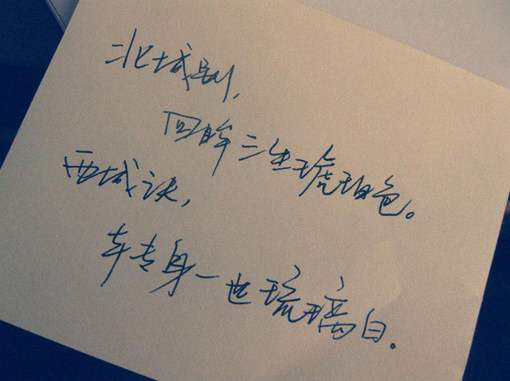 北城别,
回眸三生琥珀色。
西城诀,
转身一世琉璃白。